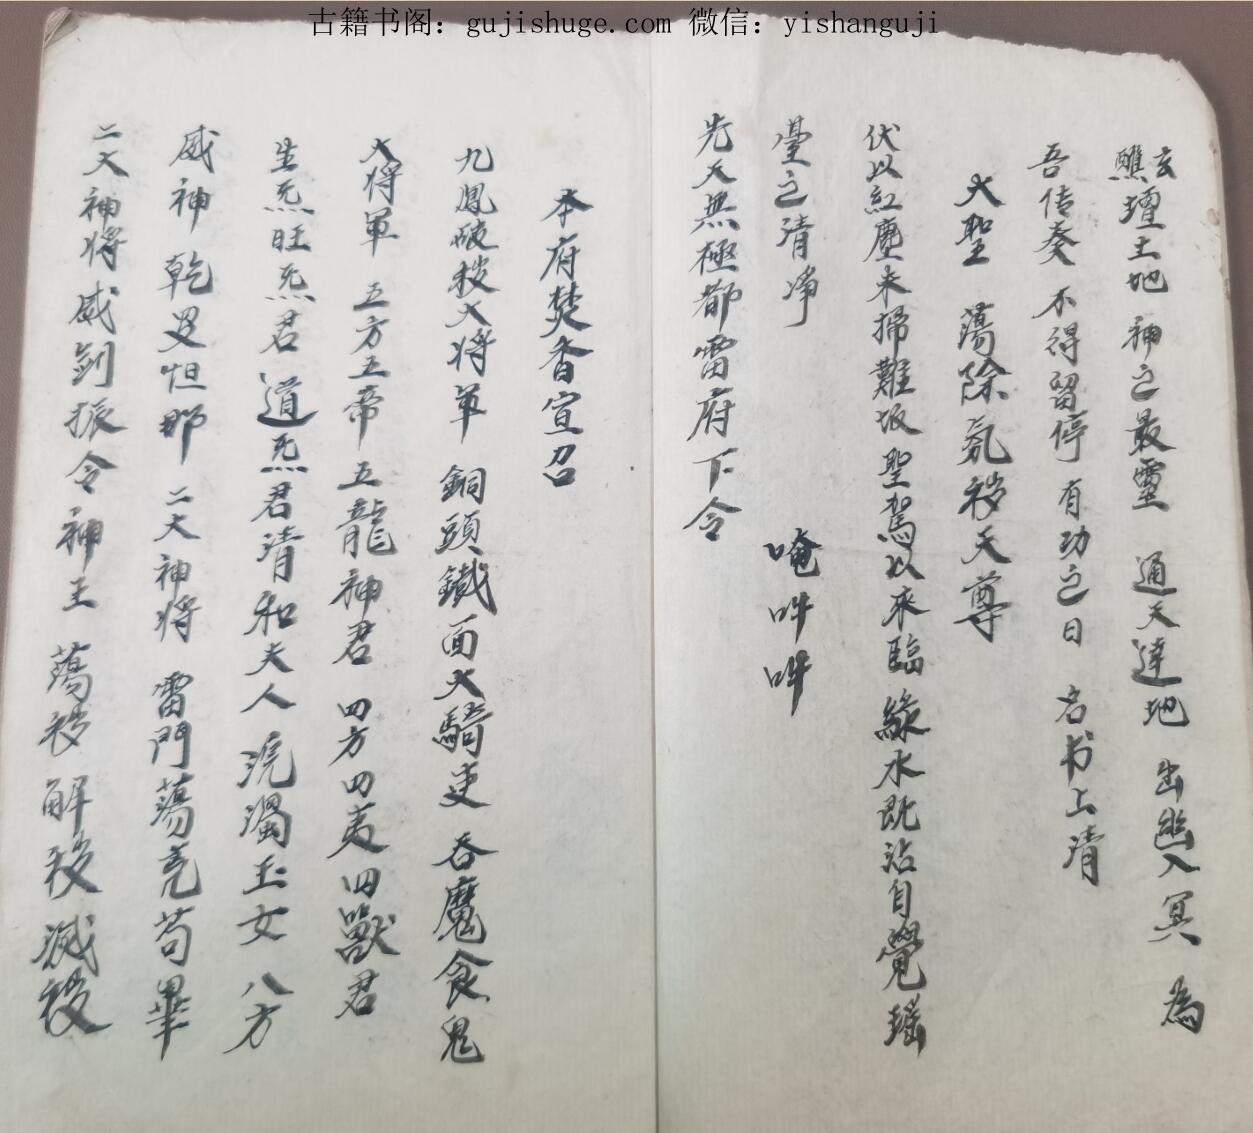 古籍书阁：gujishuge.com 微信：yishanguji
玄
醮壇土地 神之最靈 通天達地 出幽入冥 為
吾传奏 不得留停 有功之日 名书上清
大聖 蕩除氛秽天尊
伏以紅塵未掃難扳聖駕以來臨 綠水既沾自覺瑶
臺之清净 唵吽吽
先天無極都雷府下令
本府焚香宣召
九鳳破秽大将軍 銅頭鐵面大騎吏 吞魔食鬼
大将軍 五方五帝五龍神君 四方四夷四獸君
生炁旺炁君 道炁君清和夫人 浣濁玉女 八方
威神 乾旻怛那 二大神将 雷門蕩兇苟畢
二大神将威剑振令神王 蕩秽解秽滅秽